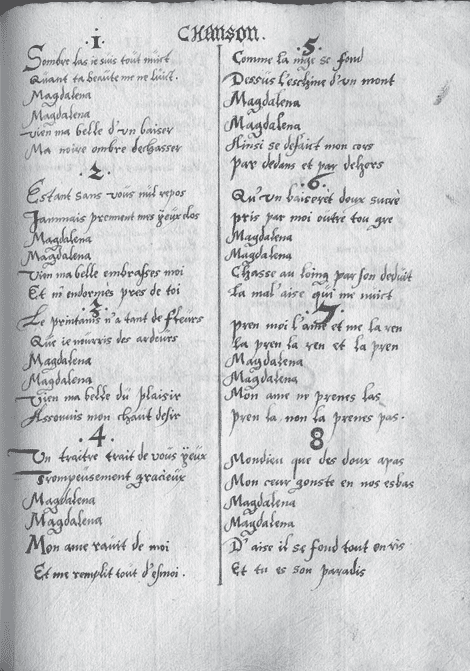 Chanson.
.1.
Sombre las ie suis tout nuict
Quant ta beaute me ne luict.
Magdalena
Magdalena
vien ma belle d'un baiser
Ma noire ombre dechasser
.2.
Estant sans vous nul repos
Jammais prennent mes yeux clos
Magdalena
Magdalena
vien ma belle embrasses moi
Et m'endormes pres de toi
.3.
Le printanis n'a tant de fleurs
Que ie nurris des ardeurs
Magdalena
Magdalena
Vien ma belle du plaisir
Assouuis mon chaut desir
.4.
Un traitre trait de vous yeux
Trompeusement gracieux
Magdalena
Magdalena
Mon ame rauit de moi
Et me remplit tout d'esmoi.
.5.
Comme la nige se fond
Dessus l'eschine d'un mont
Magdalena
Magdalena
Ainsi se defait mon cors
Par dedans et par dehors
.6.
Qu'un baiseret doux sucre
pris par moi outre tou gre
Magdalena
Magdalena
Chasse au loing par son deduit
La mal'aise qui me nuict
.7.
Pren moi l'ame et me la ren
La pren la ren et la pren
Magdalena
Magdalena
Mon ame ne prenes las
Pren la, non la prenes pas.
8
Mondieu que des doux apas
Mon ceur gouste en nos esbas
Magdalena
Magdalena
D'aise il se fond tout en ris
Et tu es son paradis